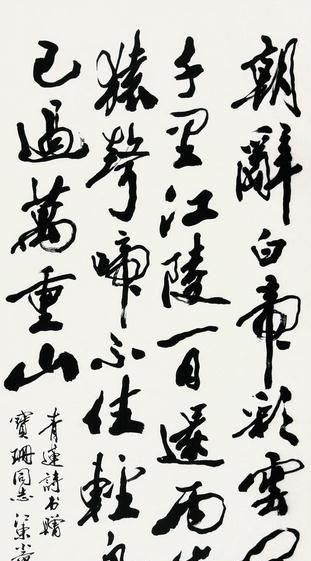 朝辭白帝彩雲
千里江陵一日還兩
猿聲啼不住輕
已過萬重山
青蓮詩書贈
寶珊同志 江東